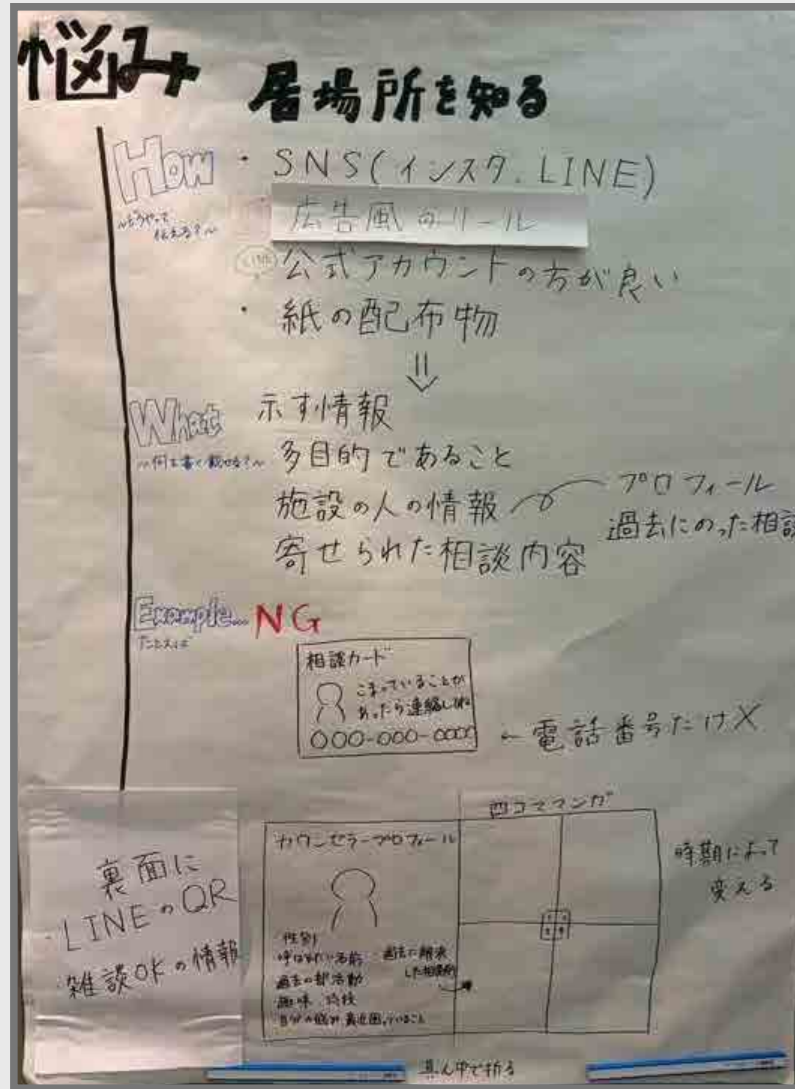 悩み 居場所を知る
How
~どうやって
伝える?~
・SNS(インスタ、LINE)
広告風のリール
LINE 公式アカウントの方が良い
・紙の配布物
⇓
What
~何を書く載せる?~
示す情報
多目的であること
施設の人の情報
寄せられた相談内容
プロフィール
過去にのった相談
Example... NG
たとえば
相談カード
こまっていることが
あったら連絡してね
○○○-○○○-○○○○
← 電話番号だけ×
裏面に
・LINEのQR
雑談OKの情報
カウンセラープロフィール
性別
呼ばれたい名前
過去の部活動
趣味、特技
自分の悩み 最近困っていること
過去に解決
した相談例
四コママンガ
時期によって
変える
真ん中で折る